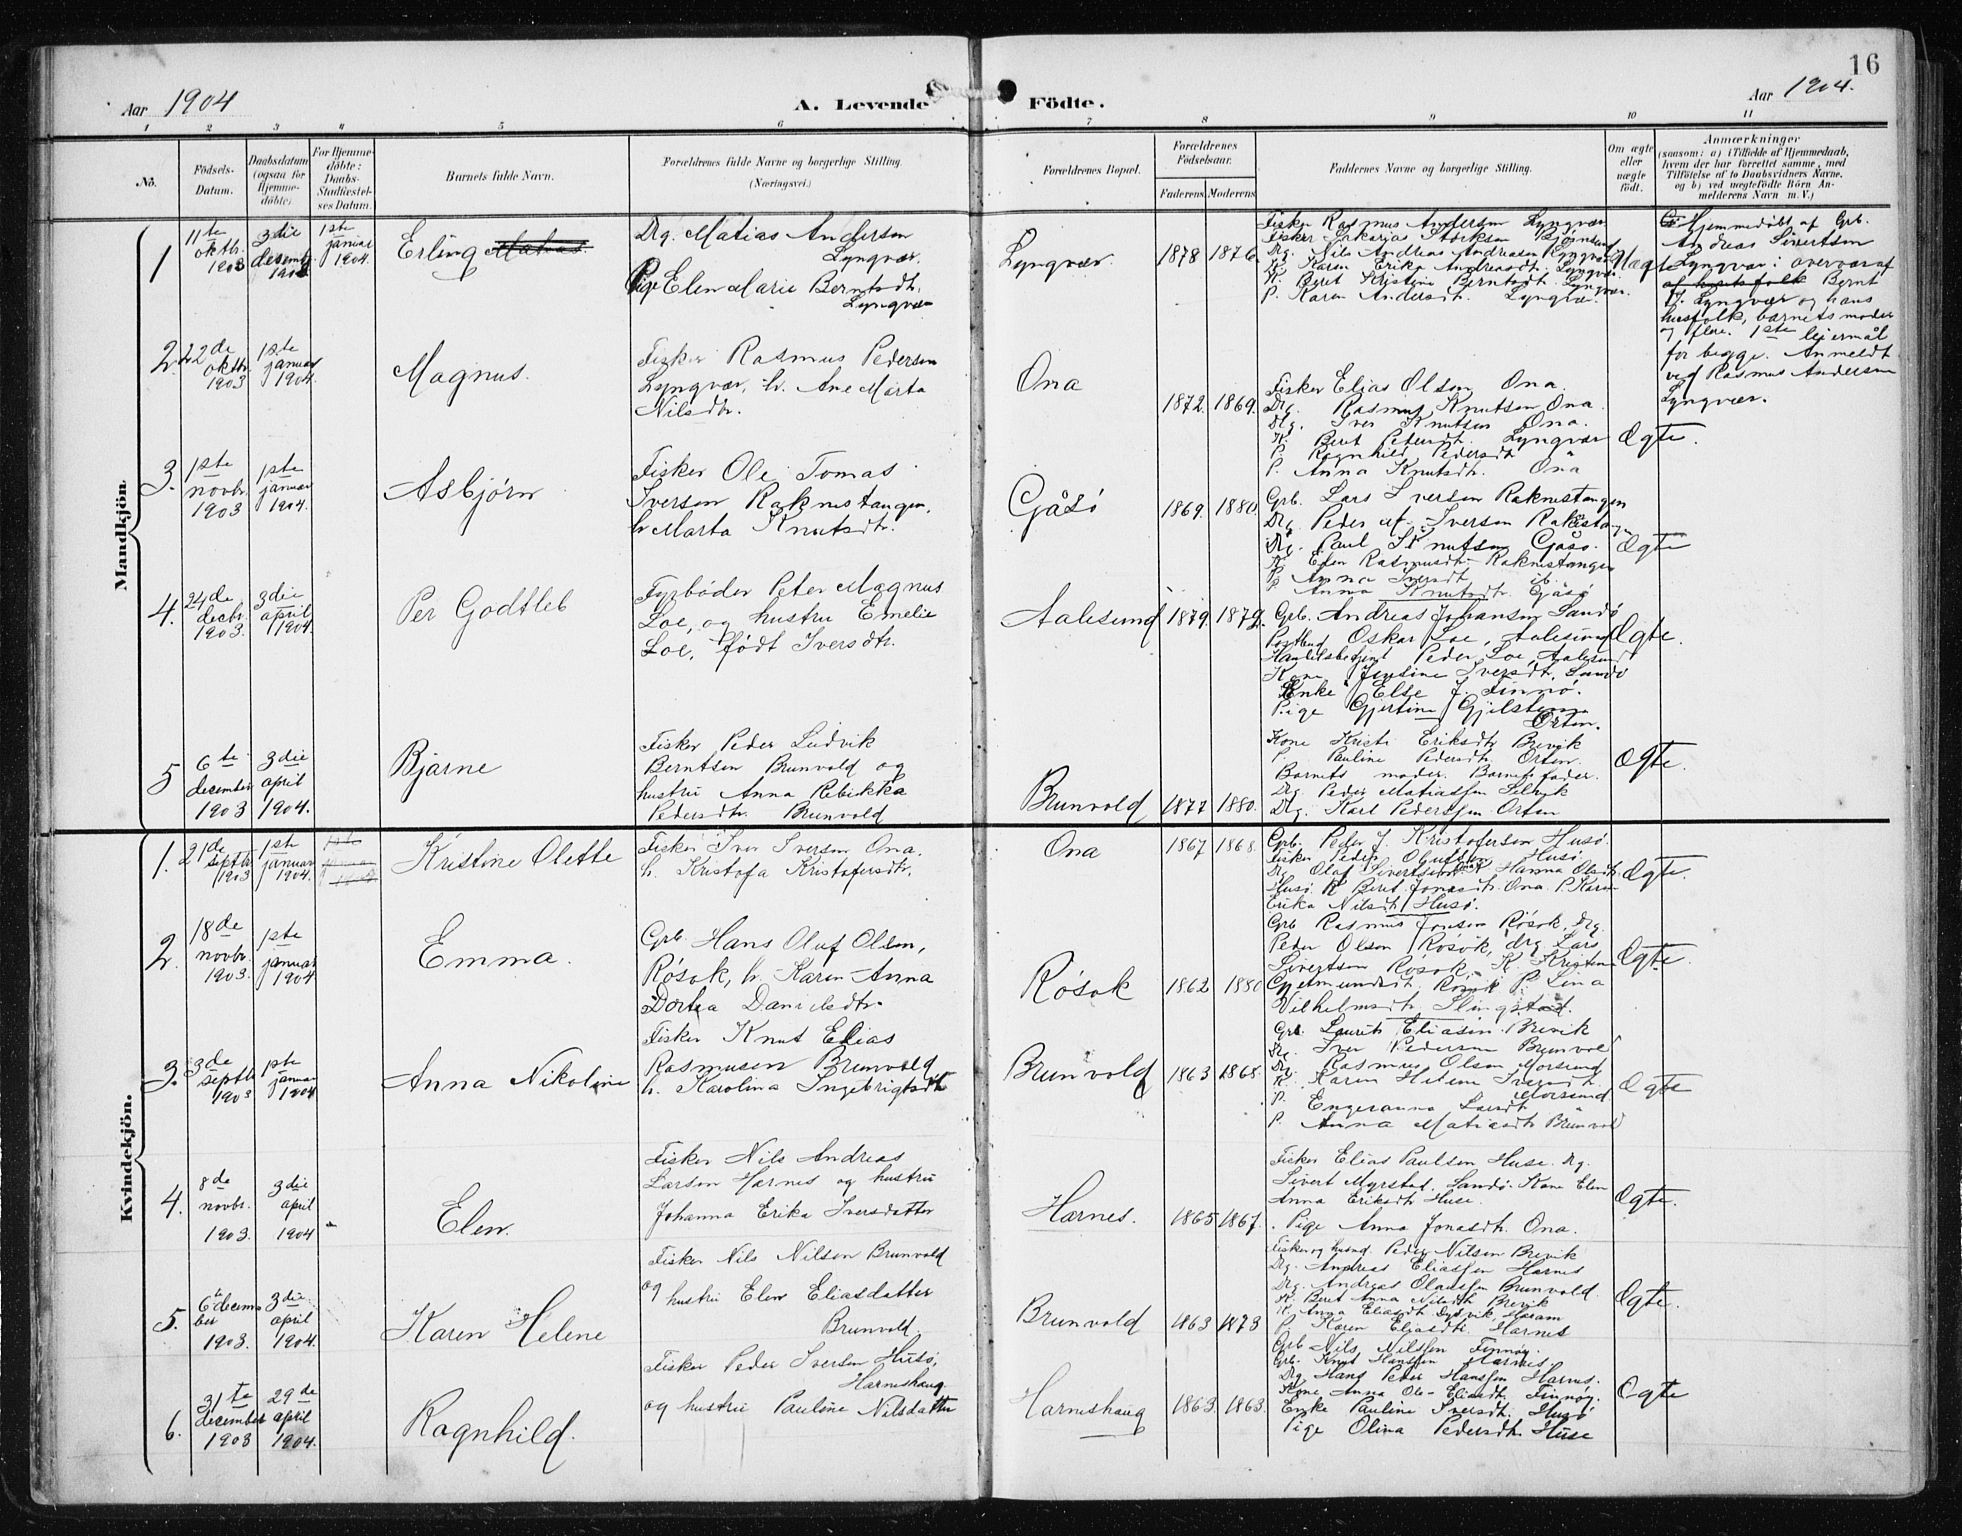 16
Aar 1904
A. Levende Födte.
Aar 1904.
1 2 3 4 5 6 7 8 9 10 11
No.
Födsels-
Datum.
Daabsdatum
(ogsaa for
Hjemme-
döbte).
For Hjemme-
döbte:
Daabs-
Stadfæstel-
ses Datum.
Barnets fulde Navn.
Forældrenes fulde Navne og borgerlige Stilling.
(Næringsvei.)
Forældrenes Bopæl.
Forældrenes
Födselsaar.
Faderens Moderens
Faddernes Navne og borgerlige Stilling.
Om ægte
eller
uægte
født.
Anmærkninger
(saasom: a) i Tilfælde af Hjemmedaab,
hvem der har forrettet samme, med
Tilföielse af to Daabsvidners Navne,
og b) ved uegtefödte Börn An-
melderens Navn m. V.)
Mandkjön.
1
11te
oktbr.
1903
3die
desemb.
1903
1ste
januar
1904.
Erling Matias
Drg. Matias Andersen
Lyngvær.
Pige Elen Marie Berntsdtr.
Lyngvær
Lyngvær.
1878 1876.
Fisker Rasmus Andersen Lyngvær
Drg. Nils Andreas Andreassen Lyngvær
K. Karen Erika Andreasdtr. Lyngvær
K. Beret Kristine Berntsdtr. Lyngvær.
P. Karen Andersdtr. Lyngvær.
Uægte
Hjemmedøbt af Grb.
Andreas Sivertsen
Lyngvær i overvær af
af husfolk Bernt
J. Lyngvær og hans
husfolk, barnets moder
og flere. 1ste leiermål
for begge. Anmeldt
ved Rasmus Andersen
Lyngvær.
2.
22de
oktbr.
1903
1ste
januar
1904.
Magnus.
Fisker Rasmus Pedersen
Lyngvær, h. Ane Marta
Nilsdtr.
Ona
1872. 1869.
Fisker Elias Olsen Ona.
Drg. Rasmus Knutsen Ona.
Drg. Iver Knutsen Ona.
K. Beret Pedersdtr. Lyngvær
P. Ragnhild Pedersdtr.
P. Anna Knutsdtr. Ona
Ægte.
3.
1ste
novbr.
1903
1ste
januar
1904.
Asbjørn
Fisker Ole Tomas
Iversen Raknestangen,
h. Marta Knutsdtr.
Gåsø
1869. 1880.
Grb. Lars Iversen Raknestangen
Drg. Peder M. Iversen Raknestangen
Drg. Paul Knutsen Gåsø.
K. Elen Rasmusdtr. Raknestangen
P. Anna Iversdt. ib.
P. Anna Knutsdtr. Gåsø
Ægte
4.
24de
decbr.
1903.
3die
april
1904.
Per Godtleb
Fyrbøder Peter Magnus
Loe, og hustru Emelie
Loe, født Iversdtr.
Aalesund
1879. 1879.
Grb. Andreas Johansen Sandø
Postbud Oskar Loe, Aalesund
Handelsbetjent Peder Loe, Aalesund
Kone Jensine Iversdtr. Sandø
Enke Else J. Finnø.
Pige Gjertine Gjelsten
Orten.
Ægte.
5
6te
december
1903
3die
april
1904.
Bjarne
Fisker Peder Ludvik
Berntsen Brunvold og
hustru Anna Rebekka
Pedersdtr. Brunvold
Brunvold
1877 1880.
Kone Kristi Eriksdtr Brevik
P. Pauline Pedersdtr. Orten.
Barnets moder. Barnets fader.
Drg. Peder Matiassen Selvik
Drg. Karl Pedersen Orten
Ægte.
Kvindekjön.
1.
21de
septbr.
1903
1ste
januar
1904.
1ste
januar
1904
Kristine Olette
Fisker Iver Iversen Ona.
h. Kristofa Kristofersdtr.
Ona
1867 1868.
Grb. Peder J. Kristofersen Husø.
Fisker Peder Olufsen Husø
Drg. Olaf Sivertsen Hanna Olsdtr.
Husø. K. Beret Jonasdtr. Ona. P. Karen
Erika Nilsdtr. Husø.
Ægte.
2.
18de
novbr.
1903.
1ste
januar
1904
Emma.
Grb. Hans Oluf Olsen,
Røsok, h. Karen Anna
Dortea Danielsdtr.
Røsok
1862 1880
Grb Rasmus Jonsen Røsok, drg.
Peder Olsen Røsok, drg. Lars
Sivertsen Røsok, K. Kristine
Gjetmundsdt. Røsok P. Lina
Vilhelmsdt. Slingstad.
Ægte.
3.
3de
septbr.
1903
1ste
januar
1904
Anna Nikoline
Fisker Knut Elias
Rasmusen Brunvold
h. Karolina Ingebrigtsdtr
Brunvold
1863 1868.
Grb. Laurits Eliasen Brevik
Drg. Iver Pedersen Brunvold
Drg. Rasmus Olsen Morsund
K. Karen Helene Iversdt.
Morsund
P. Engeranna Larsdt.
P. Anna Matiasdtr Brunvold
Ægte
4.
8de
novbr.
1903.
3die
april
1904
Elen.
Fisker Nils Andreas
Larsen Harnes og hustru
Johanna Erika Iversdatter
Harnes.
1865 1867.
Fisker Elias Paulsen Huse. Drg.
Sivert Myrstad, Sandø. Kone Elen
Anna Eriksdtr. Huse.
Pige Anna Jonasdtr. Ona.
Ægte.
5.
6te decem-
ber
1903.
3die
april
1904.
Karen Helene
Fisker Nils Nilsen Brunvold
og hustru Elen Eliasdatter
Brunvold.
Brunvold
1863 1873
Fisker og husmd. Peder Nilsen Brevik
Drg. Andreas Eliassen Harnes
Drg. Andreas Olaussen Brunvold.
K. Beret Anna Nilsdt. Brevik
K. Anna Eliasdt. Dydvik, Haram
P. Karen Eliasdtr. Harnes
Ægte.
6.
31te
december
1903
29de
april
1904.
Ragnhild.
Fisker Peder Iversen Husø,
Harneshaug
og hustru Pauline Nilsdatter
Harneshaug
1863. 1863.
Grb Nils Nilssen Finnøy.
Grb. Knut Hanssen Harnes.
Drg Hans Peder Hanssen Harnes.
Kone Anna Ole-Eliasdt. Finnøy.
Enke Pauline Iversdt. Husø
Pige Olina Pedersdt. Huse
Ægte